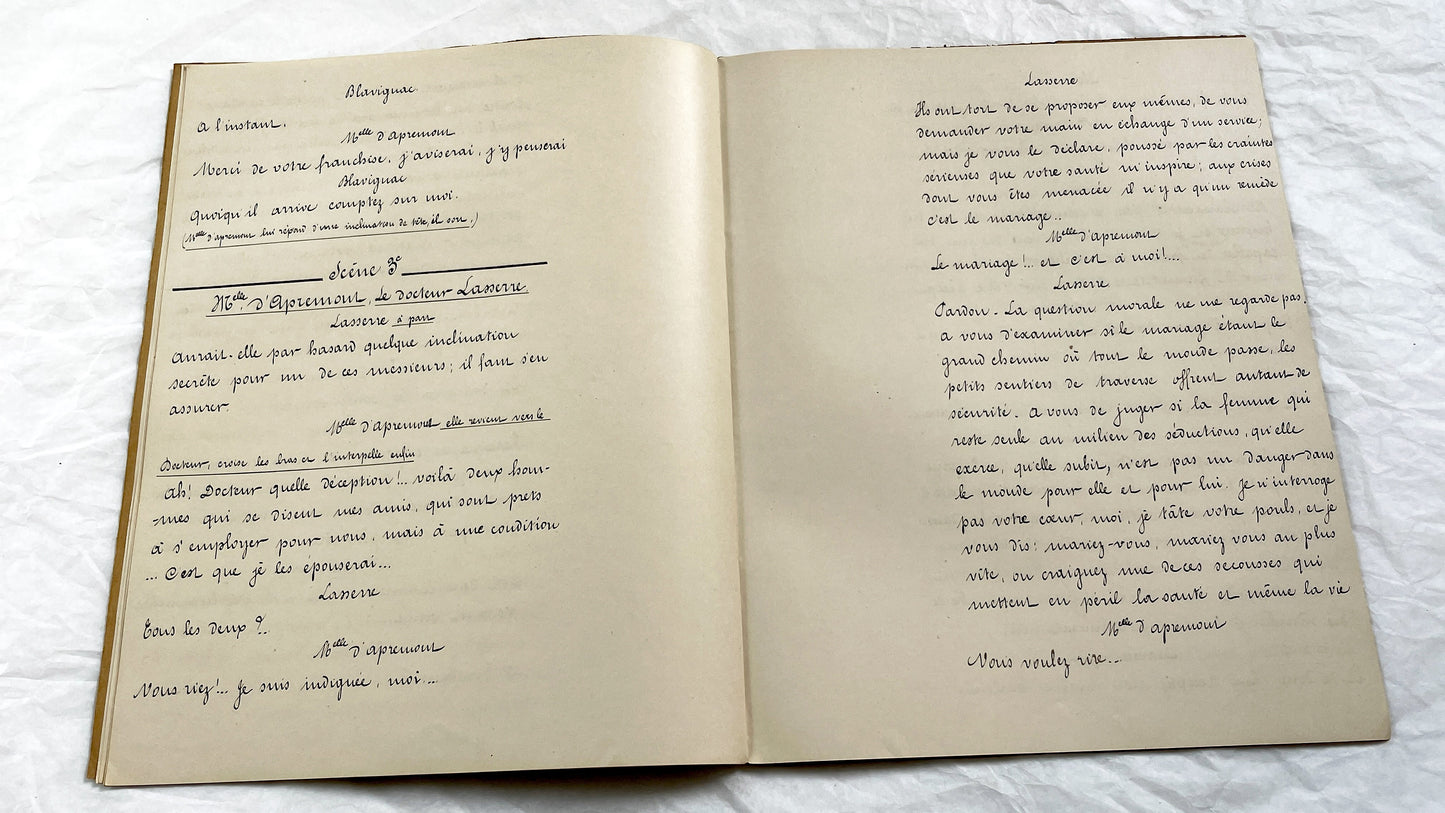 Blavignac
A l'instant.
Melle d'Apremont
Merci de votre franchise, j'aviserai, j'y penserai
Blavignac
Quoiqu'il arrive comptez sur moi.
(Melle d'Apremont lui répond d'une inclination de tête, il sort.)
Scène 3e
Melle d'Apremont, Le Docteur Lasserre.
Lasserre à part
Aurait-elle par hasard quelque inclination
secrète pour un de ces messieurs; il faut s'en
assurer.
Melle d'Apremont elle revient vers le
Docteur, croise les bras et l'interpelle enfin
Ah! Docteur quelle déception!.. voilà deux hom-
-mes qui se disent mes amis, qui sont prêts
à s'employer pour nous, mais à une condition
... C'est que je les épouserai...
Lasserre
Tous les deux?..
Melle d'Apremont
Vous riez!.. Je suis indignée, moi...
Lasserre
Ils ont tort de se proposer eux mêmes, de vous
demander votre main en échange d'un service;
mais je vous le déclare, poussé par les craintes
sérieuses que votre santé m'inspire; aux crises
dont vous êtes menacée il n'y a qu'un remède
c'est le mariage..
Melle d'Apremont
Le mariage!.. et c'est à moi!...
Lasserre
Pardon. La question morale ne me regarde pas.
A vous d'examiner si le mariage étant le
grand chemin où tout le monde passe, les
petits sentiers de traverse offrent autant de
sécurité. A vous de juger si la femme qui
reste seule au milien des séductions, qu'elle
exerce, qu'elle subit, n'est pas un danger dans
le monde pour elle et pour lui. Je n'interroge
pas votre cœur, moi, je tâte votre pouls, et je
vous dis: mariez-vous, mariez vous au plus
vite, ou craignez une de ces secousses qui
mettent en péril la santé et même la vie
Melle d'Apremont
Vous voulez rire...